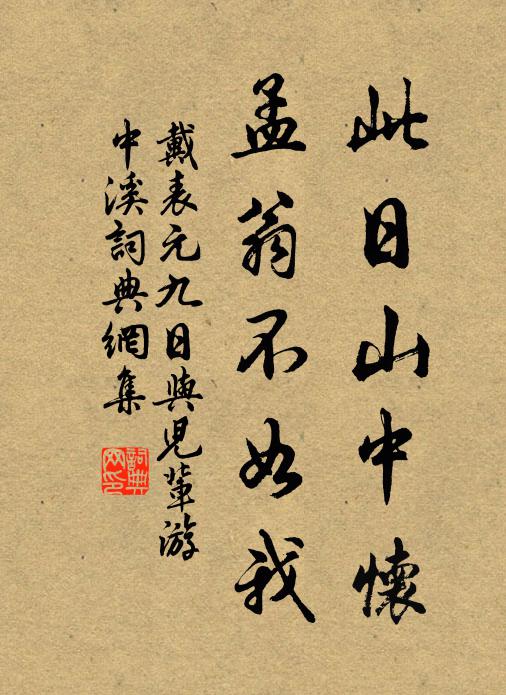 此日山中懷
孟翁不如我
戴表元九日與兒輩游
中溪詞典網集
詞典網印